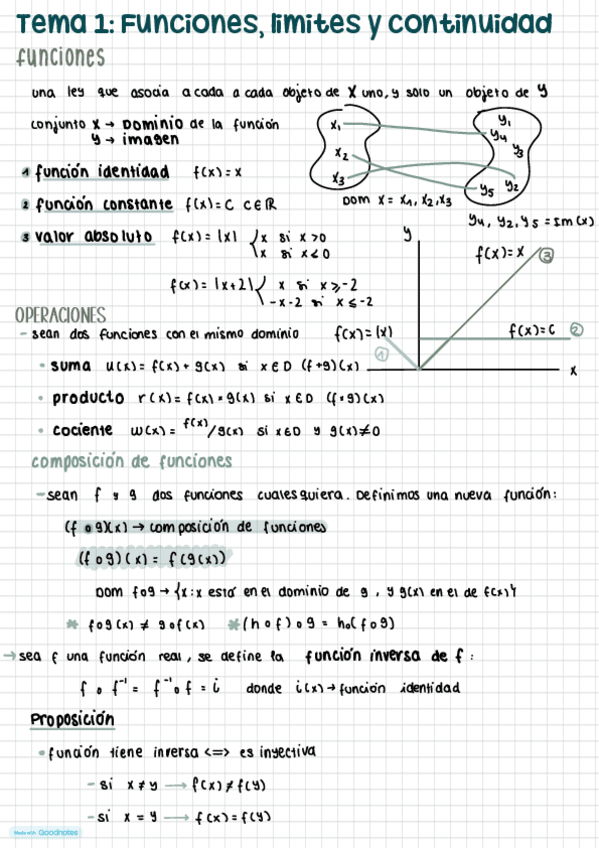 Tema 1: Funciones, límites y continuidad
funciones
una ley que asocia a cada a cada objeto de X uno, y solo un objeto de y
conjunto x → Dominio de la función
y → imagen
x₁
x₂
x₃
y₁
y₄
y₃
y₅ y₂
Dom x = x₁, x₂, x₃
y₄, y₂, y₅ = Im(x)
1 función identidad f(x) = x
2 función constante f(x) = C C∈ℝ
3 valor absoluto f(x) = |x| { x si x > 0
\x si x < 0
f(x) = |x+2| { x si x ≥ -2
-x-2 si x ≤ -2
y
f(x) = x 3
f(x) = C 2
f(x) = |x|
1
x
OPERACIONES
- sean dos funciones con el mismo dominio
• suma u(x) = f(x) + g(x) si x ∈ D (f+g)(x)
• producto r(x) = f(x) · g(x) si x ∈ D (f·g)(x)
• cociente w(x) = f(x)/g(x) si x∈D y g(x)≠0
composición de funciones
- sean f y g dos funciones cualesquiera. Definimos una nueva función:
(f o g)(x) → composición de funciones
(f o g)(x) = f(g(x))
Dom fog → {x : x está en el dominio de g, y g(x) en el de f(x)}
* fog(x) ≠ gof(x) * (hof) o g = ho(fog)
→ sea f una función real, se define la función inversa de f:
f o f⁻¹ = f⁻¹o f = i donde i(x) → función identidad
Proposición
• función tiene inversa <=> es inyectiva
- si x ≠ y → f(x) ≠ f(y)
- si x = y → f(x) = f(y)
Made with Goodnotes